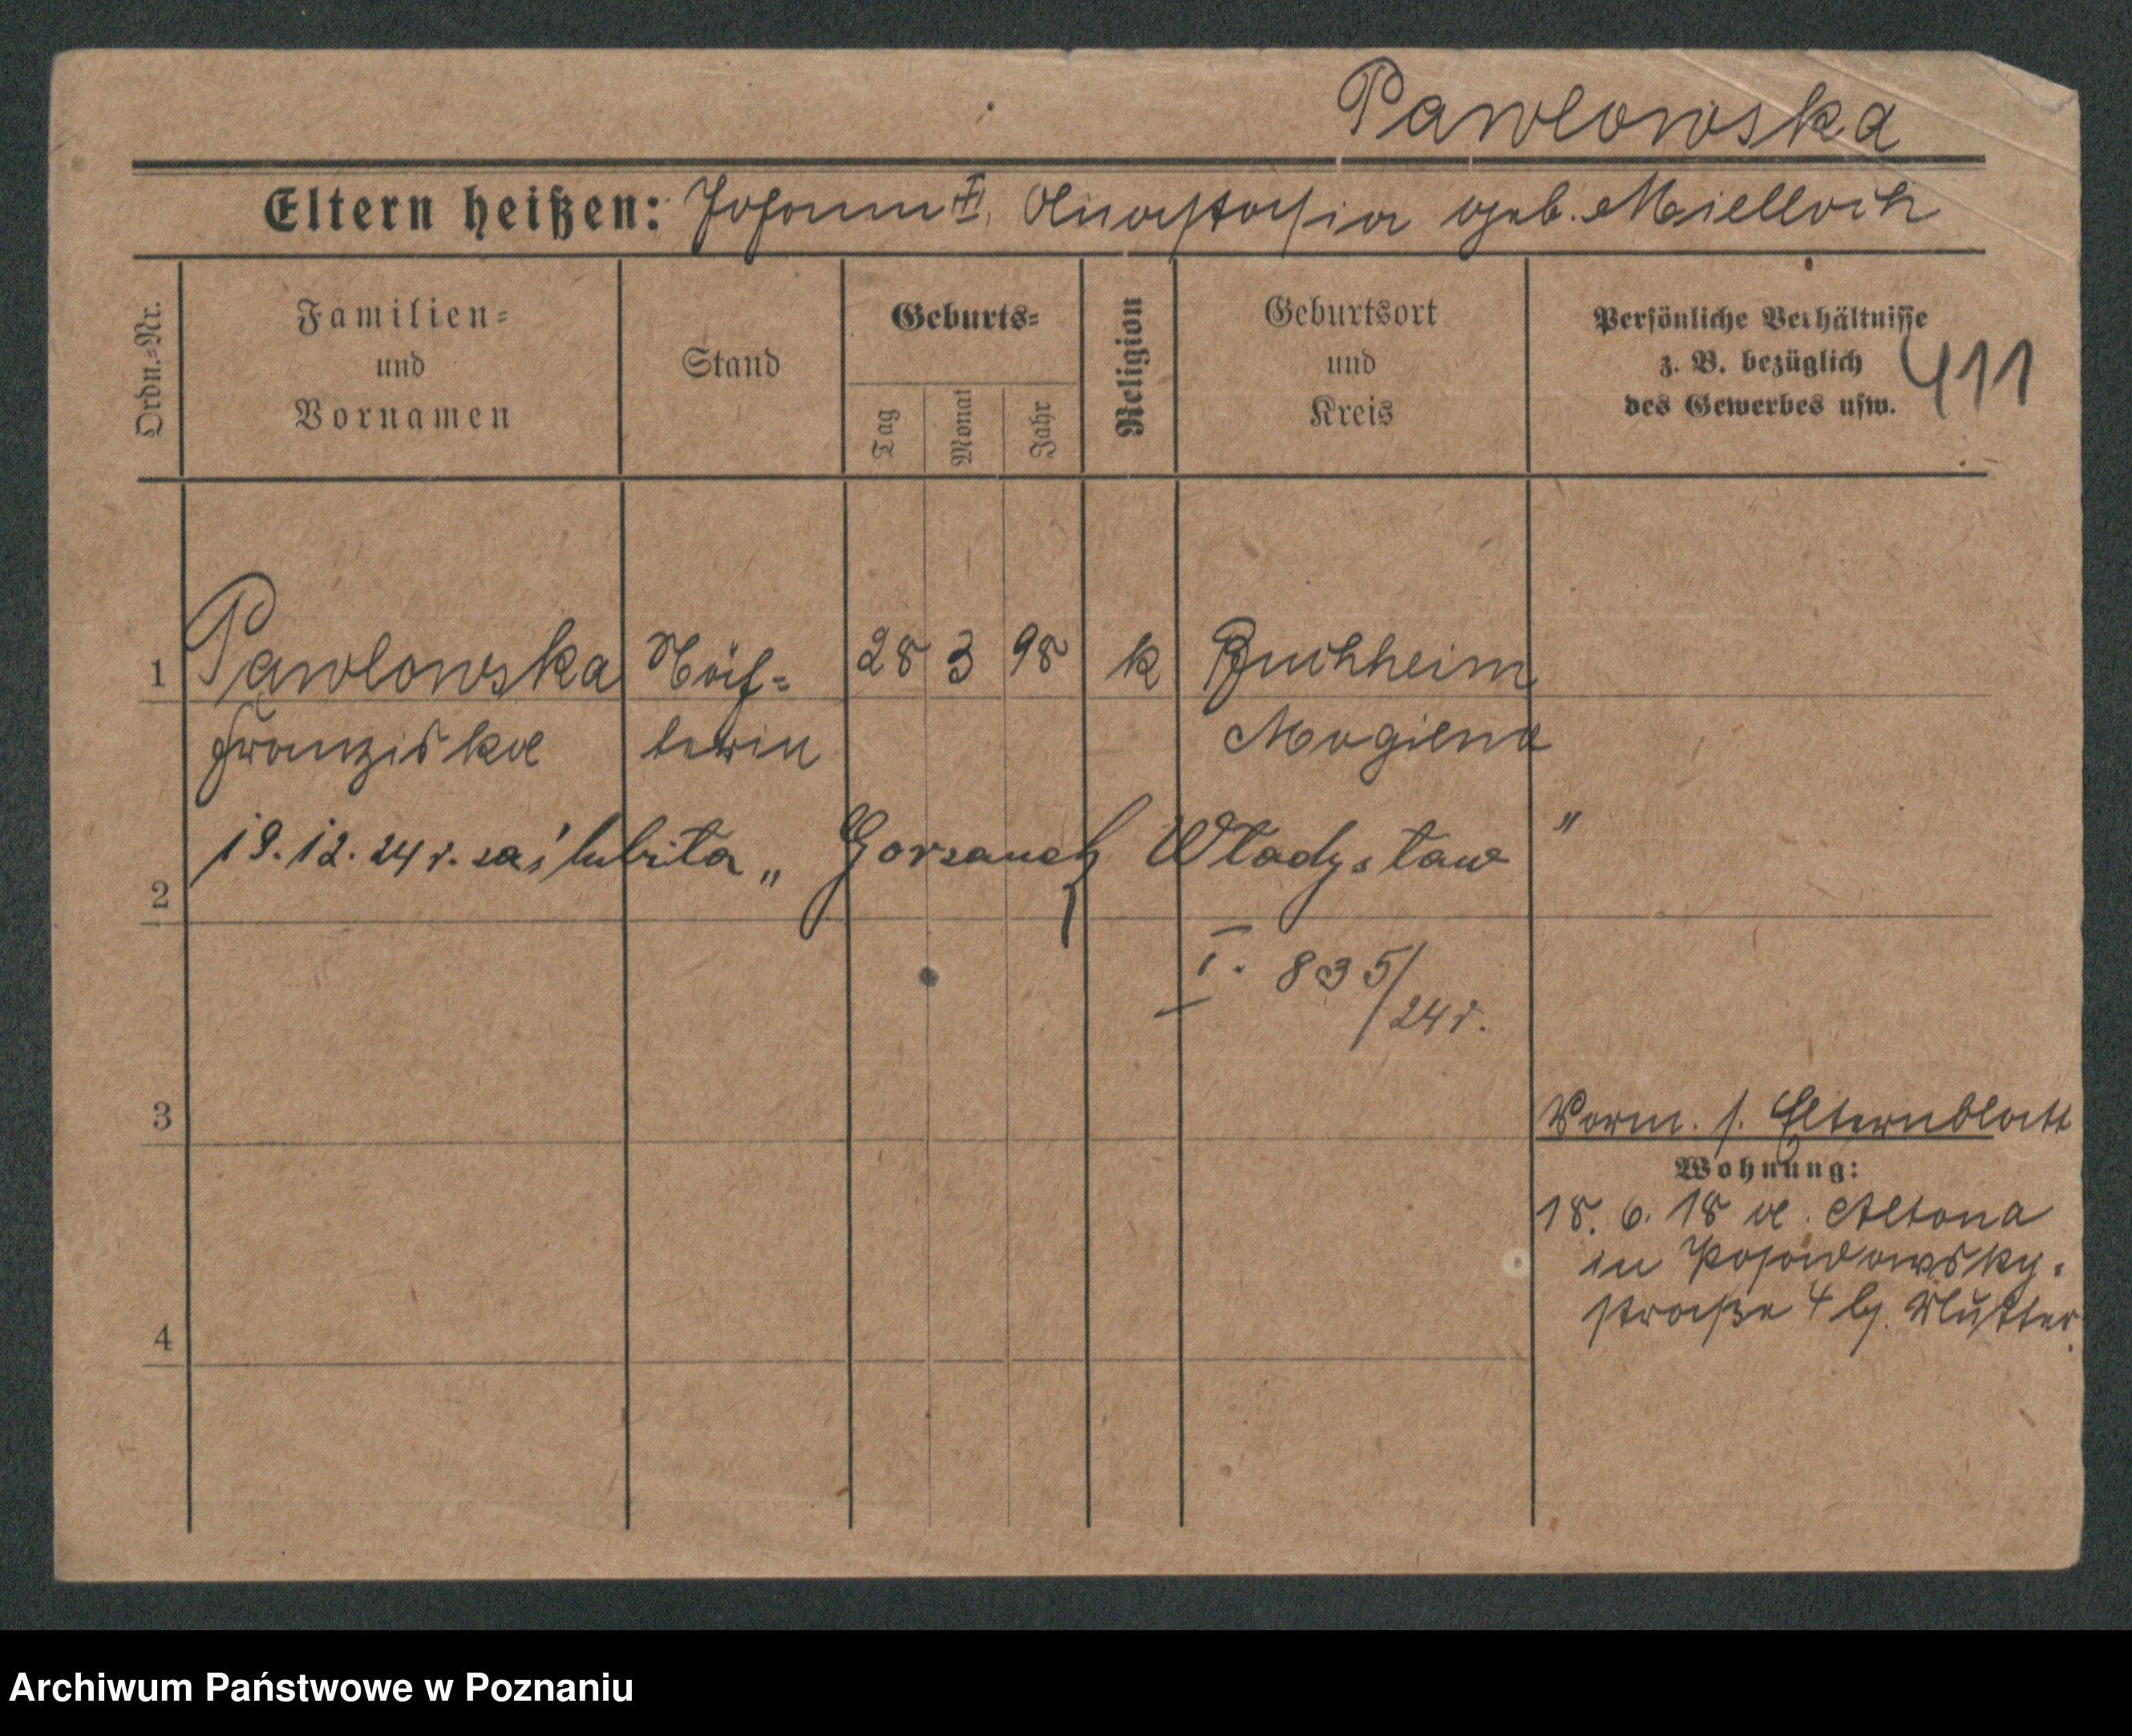 Pawlowska
Eltern heißen: Johann †, Anastasia geb. Mielloch
Ordn.-Nr.
Familien- und Vornamen
Stand
Geburts-
Tag
Monat
Jahr
Religion
Geburtsort und Kreis
Persönliche Verhältnisse
z. B. bezüglich
des Gewerbes usw.
411
1 Pawlowska Näh- 28 3 98 k Buchheim
Franziska terin Mogilno
19.12.24 r. zaślubiła „ Gorzanch Władysław "
2
I. 835/24 r.
3
Vorm. s. Elternblatt
Wohnung:
18. 6. 18 a. Altona
in Posadowsky-
straße 4 b. Mutter.
4
Archiwum Państwowe w Poznaniu